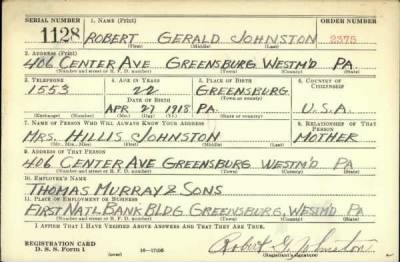 SERIAL NUMBER 1. NAME (Print) ORDER NUMBER
1128 ROBERT GERALD JOHNSTON 2375
(First) (Middle) (Last)
2. ADDRESS (Print)
406 CENTER AVE GREENSBURG WESTM'D PA
(Number and street or R. F. D. number) (Town) (County) (State)
3. TELEPHONE 4. AGE IN YEARS 5. PLACE OF BIRTH 6. COUNTRY OF CITIZENSHIP
1553 22 GREENSBURG
DATE OF BIRTH (Town or county)
APR 27 1918 PA. U.S.A.
(Exchange) (Number) (Mo.) (Day) (Yr.) (State or country)
7. NAME OF PERSON WHO WILL ALWAYS KNOW YOUR ADDRESS 8. RELATIONSHIP OF THAT PERSON
MRS. HILLIS JOHNSTON MOTHER
(Mr., Mrs., Miss) (First) (Middle) (Last)
9. ADDRESS OF THAT PERSON
406 CENTER AVE GREENSBURG WESTM'D PA
(Number and street or R. F. D. number) (Town) (County) (State)
10. EMPLOYER'S NAME
THOMAS MURRAY & SONS
11. PLACE OF EMPLOYMENT OR BUSINESS
FIRST NATL. BANK BLDG GREENSBURG, WESTM'D PA
(Number and street or R. F. D. number) (Town) (County) (State)
I AFFIRM THAT I HAVE VERIFIED ABOVE ANSWERS AND THAT THEY ARE TRUE.
REGISTRATION CARD Robert G. Johnston
D. S. S. Form 1 (over) 16—17105 (Registrant's signature)